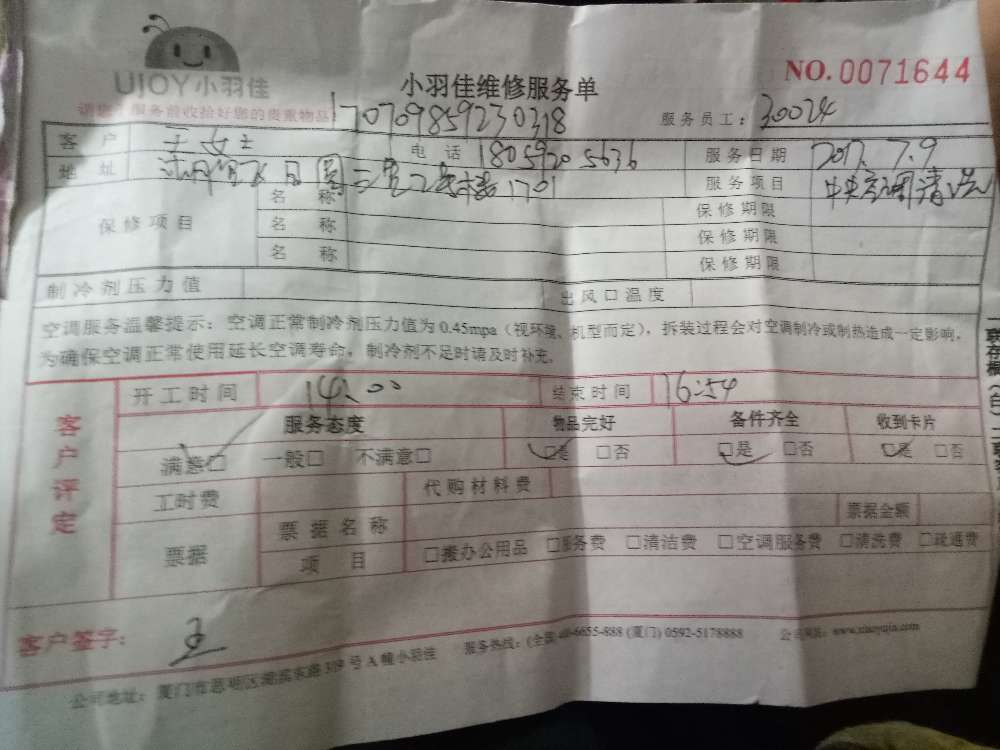 UJOY小羽佳
小羽佳维修服务单
NO.0071644
请您在服务前收拾好您的贵重物品!
170709859230318
服务员工: 30024
客户 王女士 电话 18059205636 服务日期 2017.7.9
地址 1701 服务项目 中央空调清洗
保修项目 名称 保修期限
名称 保修期限
名称 保修期限
制冷剂压力值 出风口温度
空调服务温馨提示: 空调正常制冷剂压力值为0.45mpa(视环境、机型而定), 拆装过程会对空调制冷或制热造成一定影响,
为确保空调正常使用延长空调寿命, 制冷剂不足时请及时补充。
客户评定
开工时间 14:00 结束时间 16:54
服务态度 物品完好 备件齐全 收到卡片
满意□ 一般□ 不满意□ □是 □否 □是 □否 □是 □否
工时费 代购材料费
票据 票据名称 票据金额
项目 □搬办公用品 □服务费 □清洁费 □空调服务费 □清洗费 □疏通费
客户签字: 王
服务热线: (全国)400-6655-888 (厦门) 0592-5178888
公司网址: www.xiaoyujia.com
公司地址: 厦门市思明区湖滨东路319号A幢小羽佳
一联存根(白)